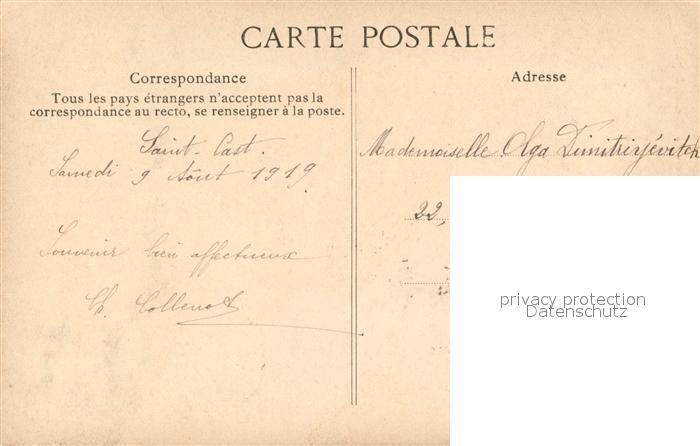 CARTE POSTALE
Correspondance
Tous les pays étrangers n'acceptent pas la
correspondance au recto, se renseigner à la poste.
Saint-Cast.
Samedi 9 Août 1919.
Souvenir bien affectueux
Ch. Collenot
Adresse
Mademoiselle Olga Dimitrijévitch
22,
privacy protection
Datenschutz